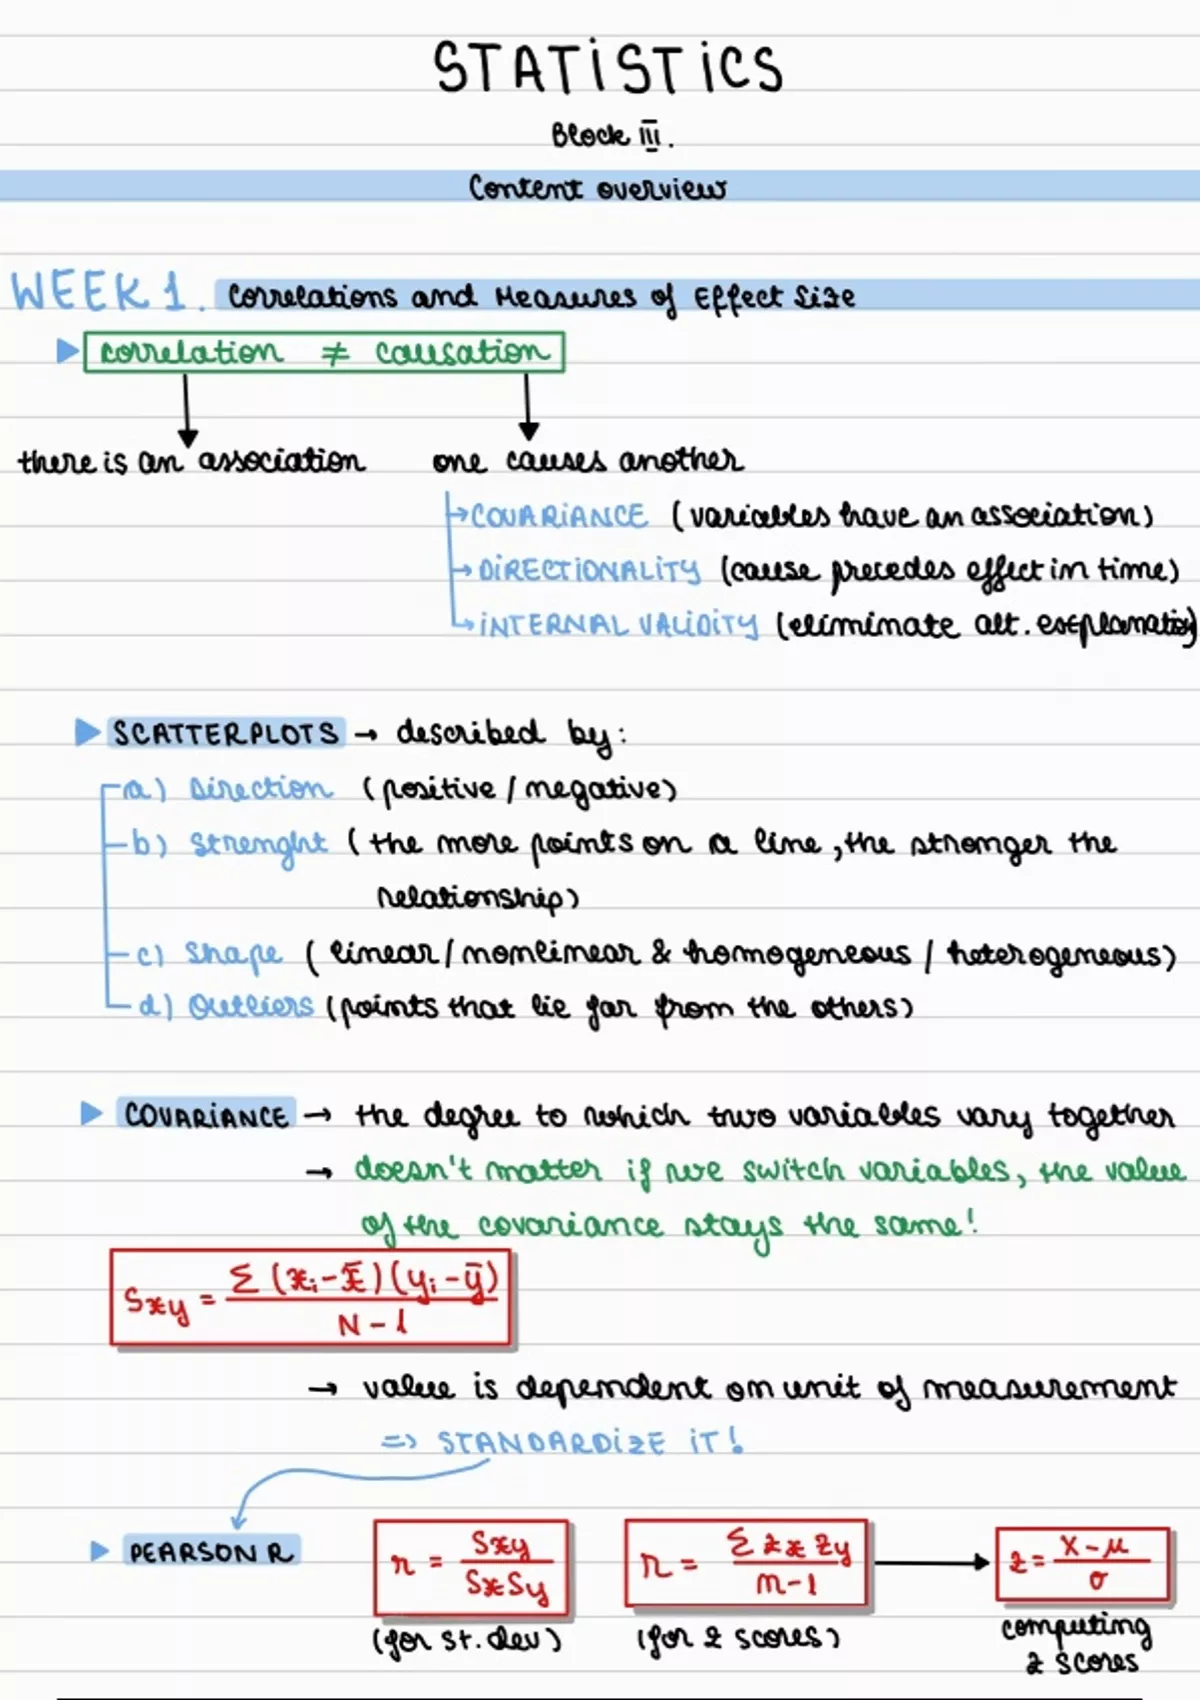 STATISTICS
Block III.
Content overview
WEEK 1. Correlations and Measures of Effect Size
correlation ≠ causation
there is an association one causes another
→ COVARIANCE (variables have an association)
→ DIRECTIONALITY (cause precedes effect in time)
→ INTERNAL VALIDITY (eliminate alt. explanation)
SCATTERPLOTS → described by:
a) Direction (positive / negative)
b) Strenght (the more points on a line, the stronger the
relationship)
c) Shape (linear / nonlinear & homogeneous / heterogeneous)
d) Outliers (points that lie far from the others)
COVARIANCE → the degree to which two variables vary together
→ doesn't matter if we switch variables, the value
of the covariance stays the same!
Sxy = Σ (xi - x̄)(yi - ȳ) / N - 1
→ value is dependent on unit of measurement
=> STANDARDIZE IT!
PEARSON R r = Sxy / SxSy r = Σ zx zy / n-1 z = X-μ / σ
(for st. dev) (for z scores) computing
z scores